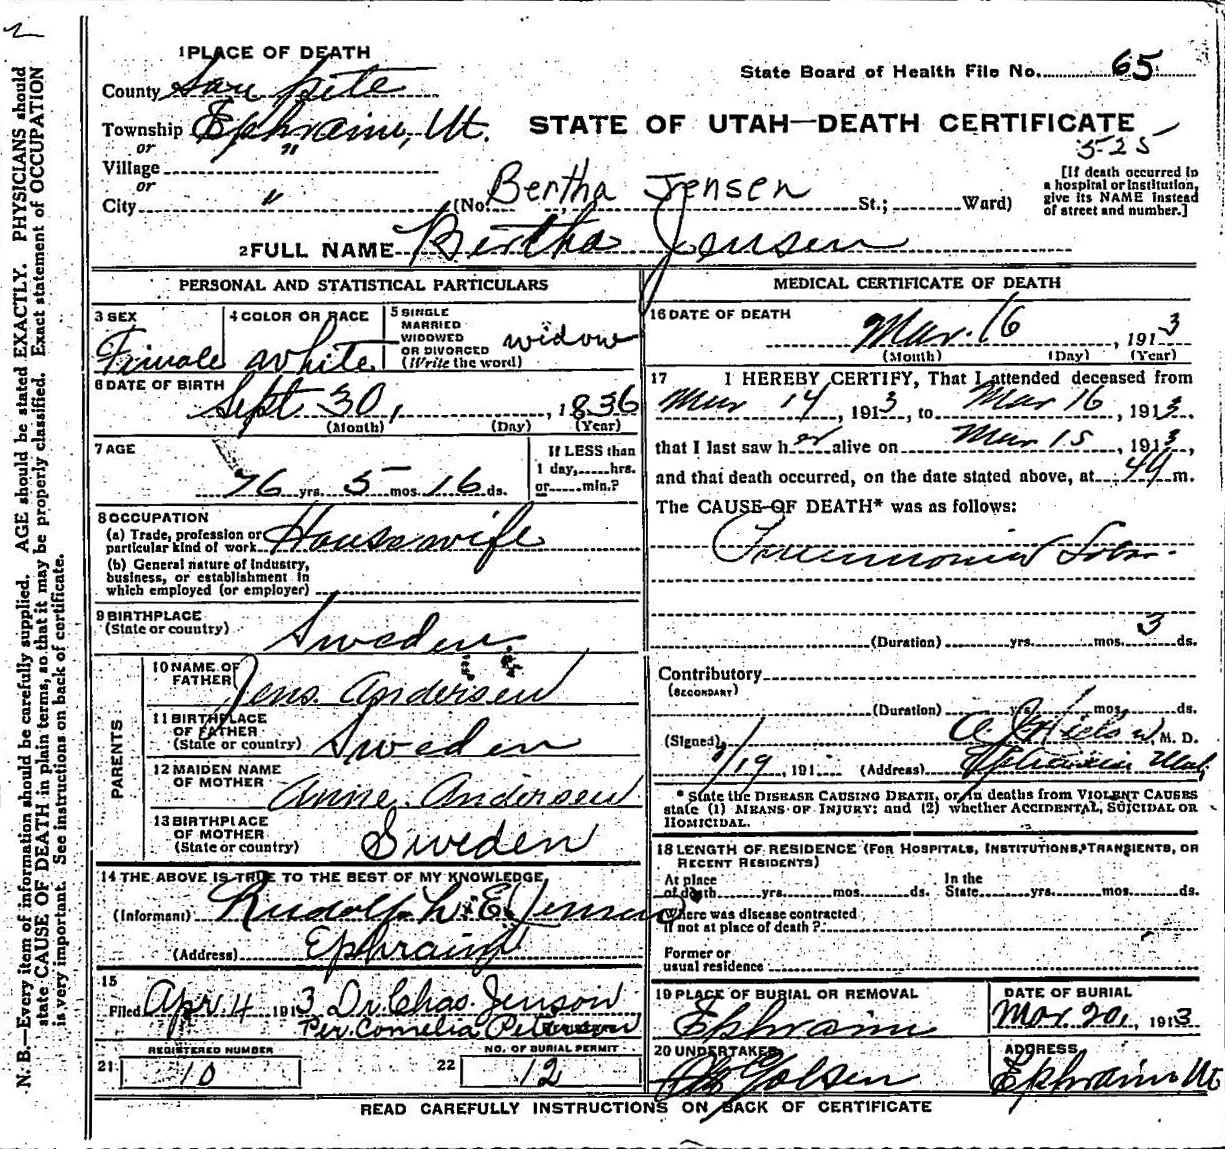 2
N. B.—Every item of information should be carefully supplied. AGE should be stated EXACTLY. PHYSICIANS should
state CAUSE OF DEATH in plain terms, so that it may be properly classified. Exact statement of OCCUPATION
is very important. See instructions on back of certificate.
1 PLACE OF DEATH
State Board of Health File No. 65
County San pete
Township Ephraim, Ut.
STATE OF UTAH—DEATH CERTIFICATE
525
or
Village "
or
City " (No. Bertha Jensen St.; Ward)
[If death occurred in
a hospital or institution,
give its NAME instead
of street and number.]
2 FULL NAME Bertha Jensen
PERSONAL AND STATISTICAL PARTICULARS
3 SEX
Female
4 COLOR OR RACE
white
5 SINGLE
MARRIED
WIDOWED
OR DIVORCED
(Write the word)
widow
6 DATE OF BIRTH
Sept 30, , 1836
(Month) (Day) (Year)
7 AGE
76 yrs. 5 mos. 16 ds.
If LESS than
1 day, hrs.
or min.?
8 OCCUPATION
(a) Trade, profession or
particular kind of work Housewife
(b) General nature of industry,
business, or establishment in
which employed (or employer)
9 BIRTHPLACE
(State or country)
Sweden
PARENTS
10 NAME OF
FATHER
Jens Andersen
11 BIRTHPLACE
OF FATHER
(State or country)
Sweden
12 MAIDEN NAME
OF MOTHER
Anne. Andersen
13 BIRTHPLACE
OF MOTHER
(State or country)
Sweden
14 THE ABOVE IS TRUE TO THE BEST OF MY KNOWLEDGE
(Informant) Rudolph E. Jensen
(Address) Ephraim
15
Filed Apr 4 1913 Dr. Chas. Jenson
Per. Cornelia Petersen
REGISTERED NUMBER
21 10
NO. OF BURIAL PERMIT
22 12
MEDICAL CERTIFICATE OF DEATH
16 DATE OF DEATH
Mar. 16 , 1913
(Month) (Day) (Year)
17 I HEREBY CERTIFY, That I attended deceased from
Mar 14 , 1913, to Mar 16 , 1913,
that I last saw her alive on Mar 15 , 1913,
and that death occurred, on the date stated above, at m.
The CAUSE OF DEATH* was as follows:
Pneumonia Lobar
(Duration) yrs. mos. 3 ds.
Contributory
(SECONDARY)
(Duration) yrs. mos. ds.
(Signed) M. D.
3/19 , 191 (Address) Ephraim Utah
* State the DISEASE CAUSING DEATH, or, in deaths from VIOLENT CAUSES
state (1) MEANS OF INJURY; and (2) whether ACCIDENTAL, SUICIDAL OR
HOMICIDAL.
18 LENGTH OF RESIDENCE (FOR HOSPITALS, INSTITUTIONS, TRANSIENTS, OR
RECENT RESIDENTS)
At place
of death yrs. mos. ds.
In the
State yrs. mos. ds.
Where was disease contracted
if not at place of death?
Former or
usual residence
19 PLACE OF BURIAL OR REMOVAL
Ephraim
DATE OF BURIAL
Mar 20, 1913
20 UNDERTAKER
Olsen
ADDRESS
Ephraim Ut
READ CAREFULLY INSTRUCTIONS ON BACK OF CERTIFICATE